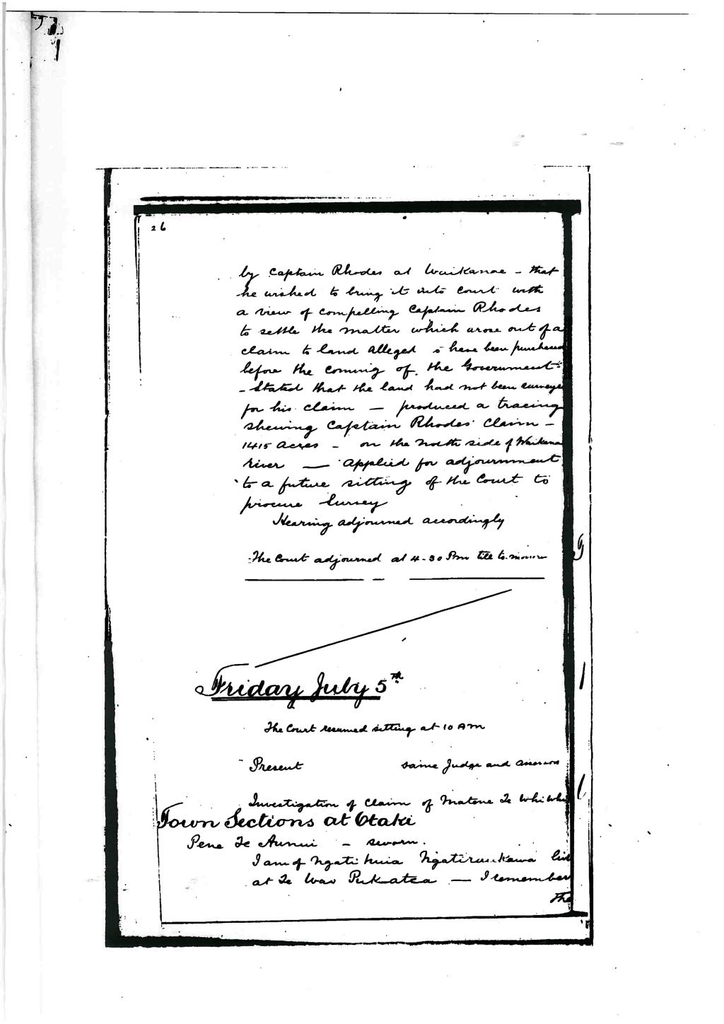 26
by Captain Rhodes at Waikanae - that
he wished to bring it into Court with
a view of compelling Captain Rhodes
to settle the matter which arose out of a
claim to land alleged to have been purchased
before the coming of the Government
- Stated that the land had not been surveye
for his claim - produced a tracing
shewing Captain Rhodes' Claim -
1415 Acres - on the North side of Waikana
River - Applied for adjournment
to a future sitting of the Court to
procure Survey
Hearing adjourned accordingly
The Court adjourned at 4-30 Pm till to-morrow
Friday July 5th
The Court resumed sitting at 10 AM
Present same Judge and assessors
Investigation of Claim of Matene Te Whiwhi
Town Sections at Otaki
Pene Te - sworn.
I am of Ngati Huia Ngatiraukawa
at Te Wao Pukatea - I remember
The